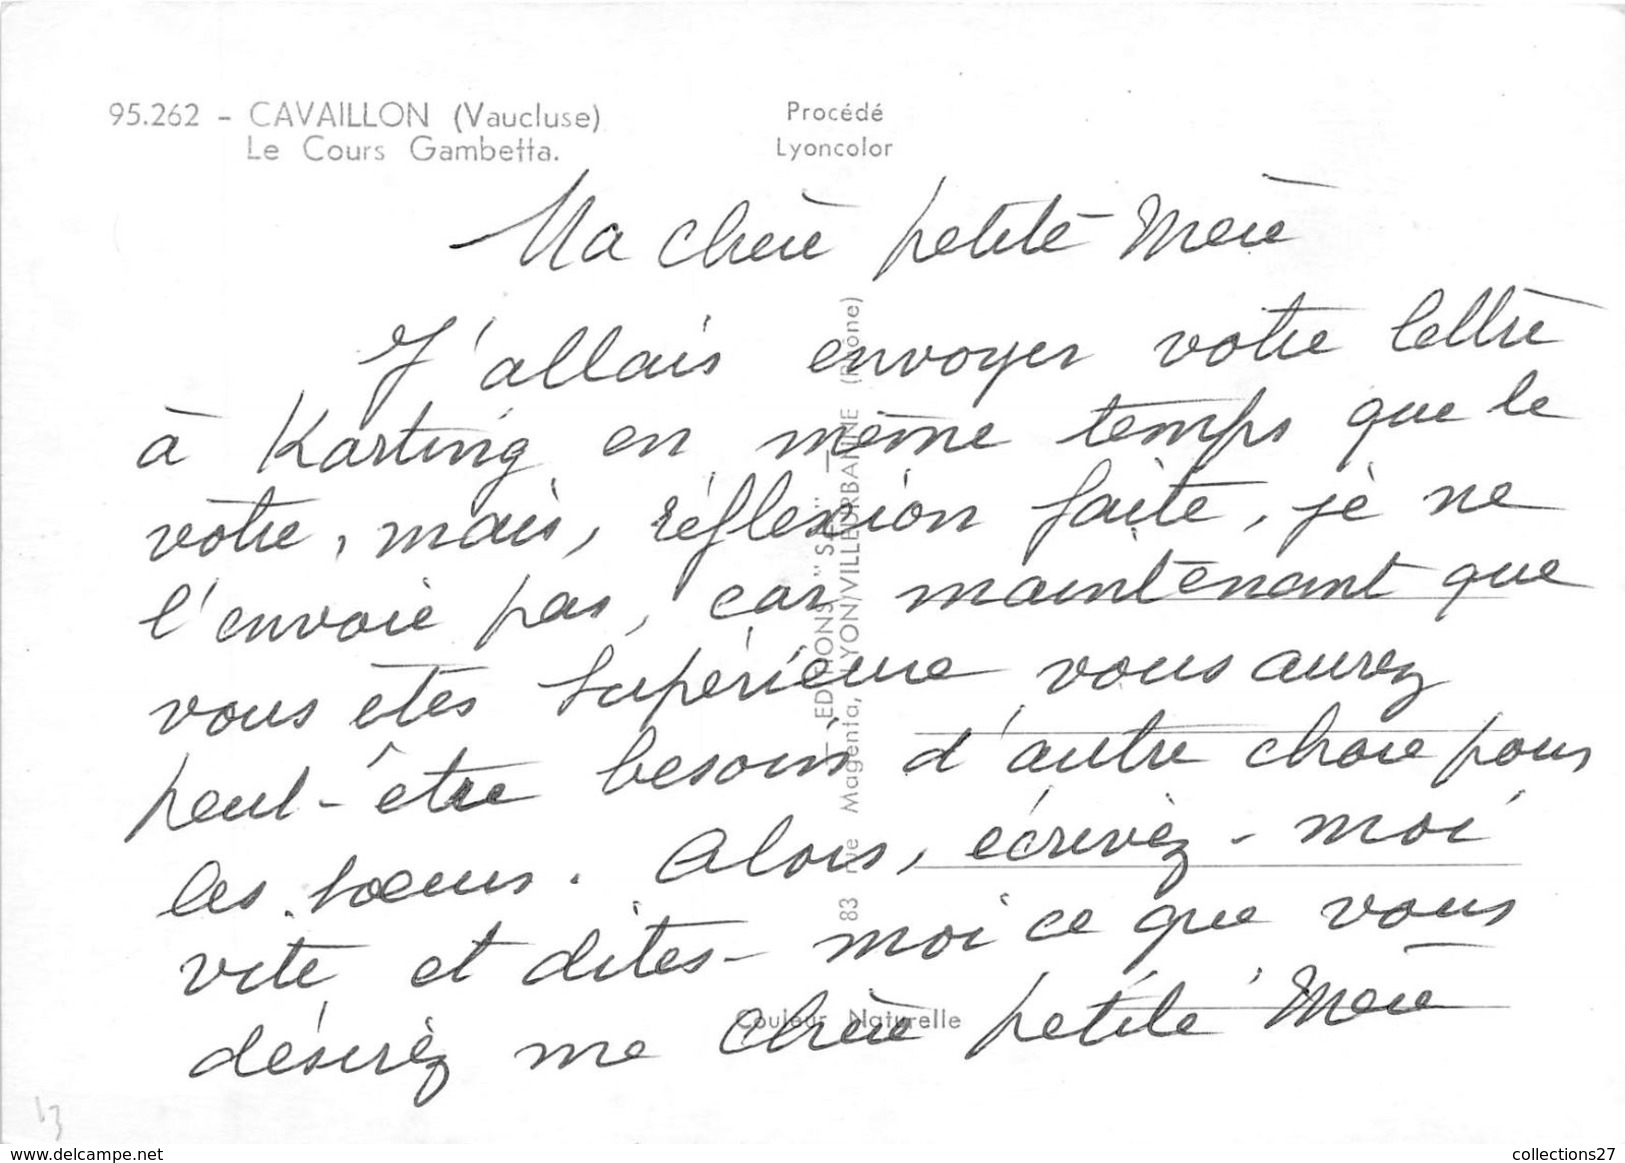 95.262 - CAVAILLON (Vaucluse)
Le Cours Gambetta.
Procédé
Lyoncolor
Ma chère petite Mère
J'allais envoyer votre lettre
à Karting en même temps que le
vôtre, mais, réflexion faite, je ne
l'envoie pas, car maintenant que
vous êtes Supérieure vous aurez
peut-être besoin d'autre chose pour
les sœurs. Alors, écrivez-moi
vite et dites-moi ce que vous
désirez ma chère petite Mère
EDITIONS "S.L."
83 rue Magenta, LYON/VILLEURBANNE (Rhône)
Couleur Naturelle
13
www.delcampe.net
collections27